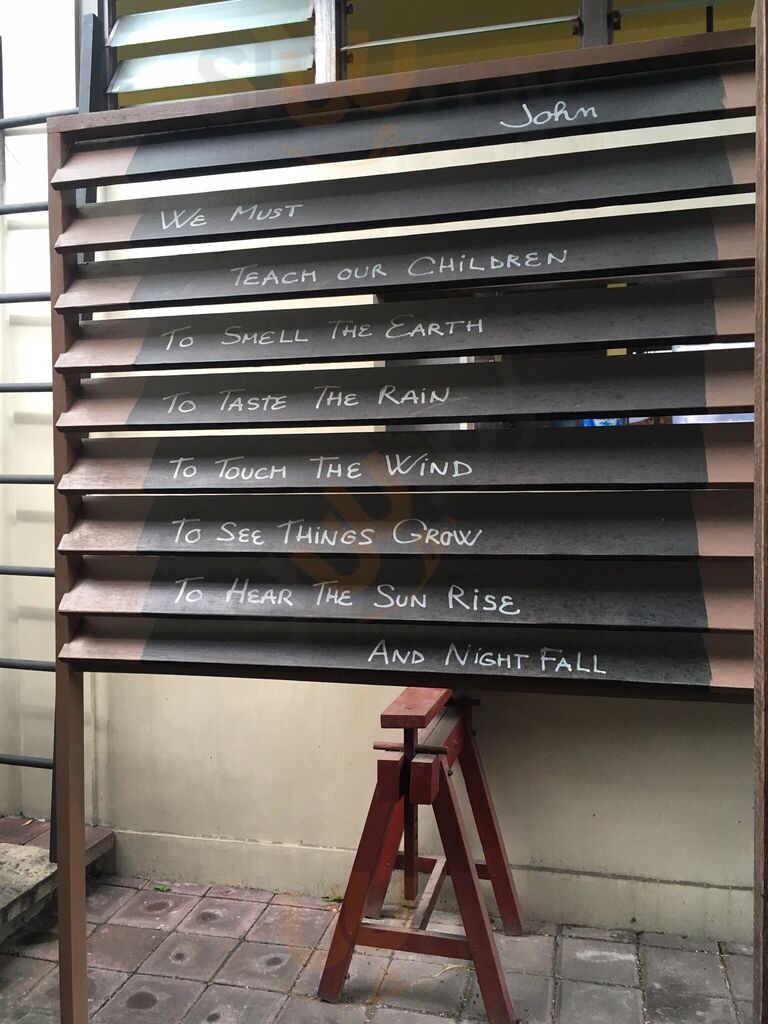 John
We Must
Teach our Children
To Smell The Earth
To Taste The Rain
To Touch The Wind
To See Things Grow
To Hear The Sun Rise
And Night Fall